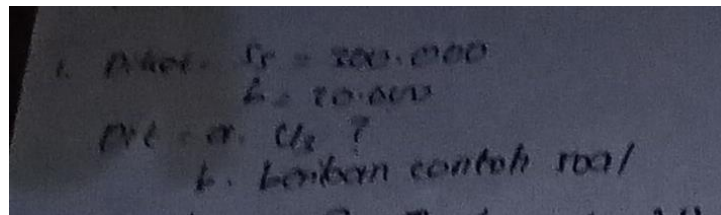 1. Diket. S₅ = 200.000
b = 20.000
Dit = a. U₂ ?
b. berikan contoh soal